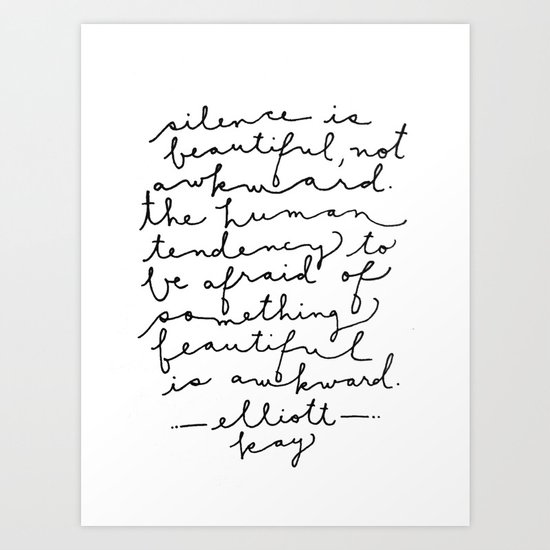 silence is
beautiful, not
awkward.
the human
tendency to
be afraid of
something
beautiful
is awkward.
elliott
kay